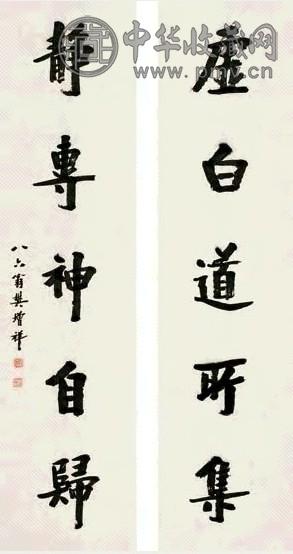 虚白道所集
靜專神自歸
八六翁樊增祥
中华收藏网
www.pmv.cn